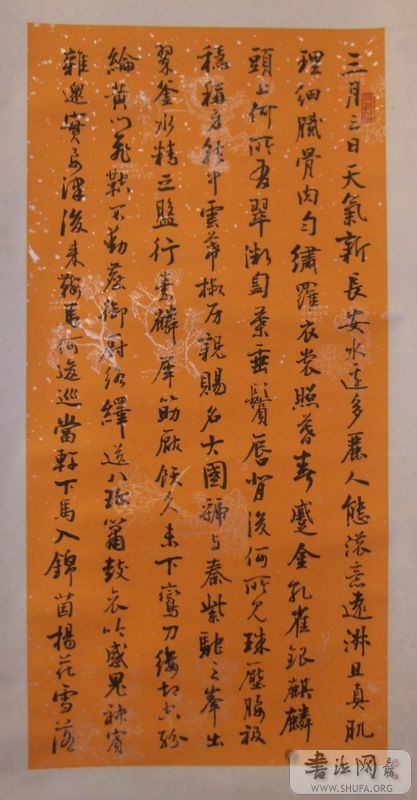 三月三日天氣新長安水邊多麗人態濃意遠淑且真肌
理細膩骨肉勻繡羅衣裳照暮春蹙金孔雀銀麒麟
頭上何所有翠微㔩葉垂鬢唇背後何所見珠壓腰衱
穩稱身就中雲幕椒房親賜名大國虢与秦紫駝之峯出
翠釜水精之盤行素鱗犀筯厭飫久未下鸞刀縷切空紛
綸黃門飛鞚不動塵御廚絡繹送八珍簫鼓哀吟感鬼神賓
雜遝實要津後來鞍馬何逡巡當軒下馬入錦茵楊花雪落
书法网
WWW.SHUFA.ORG